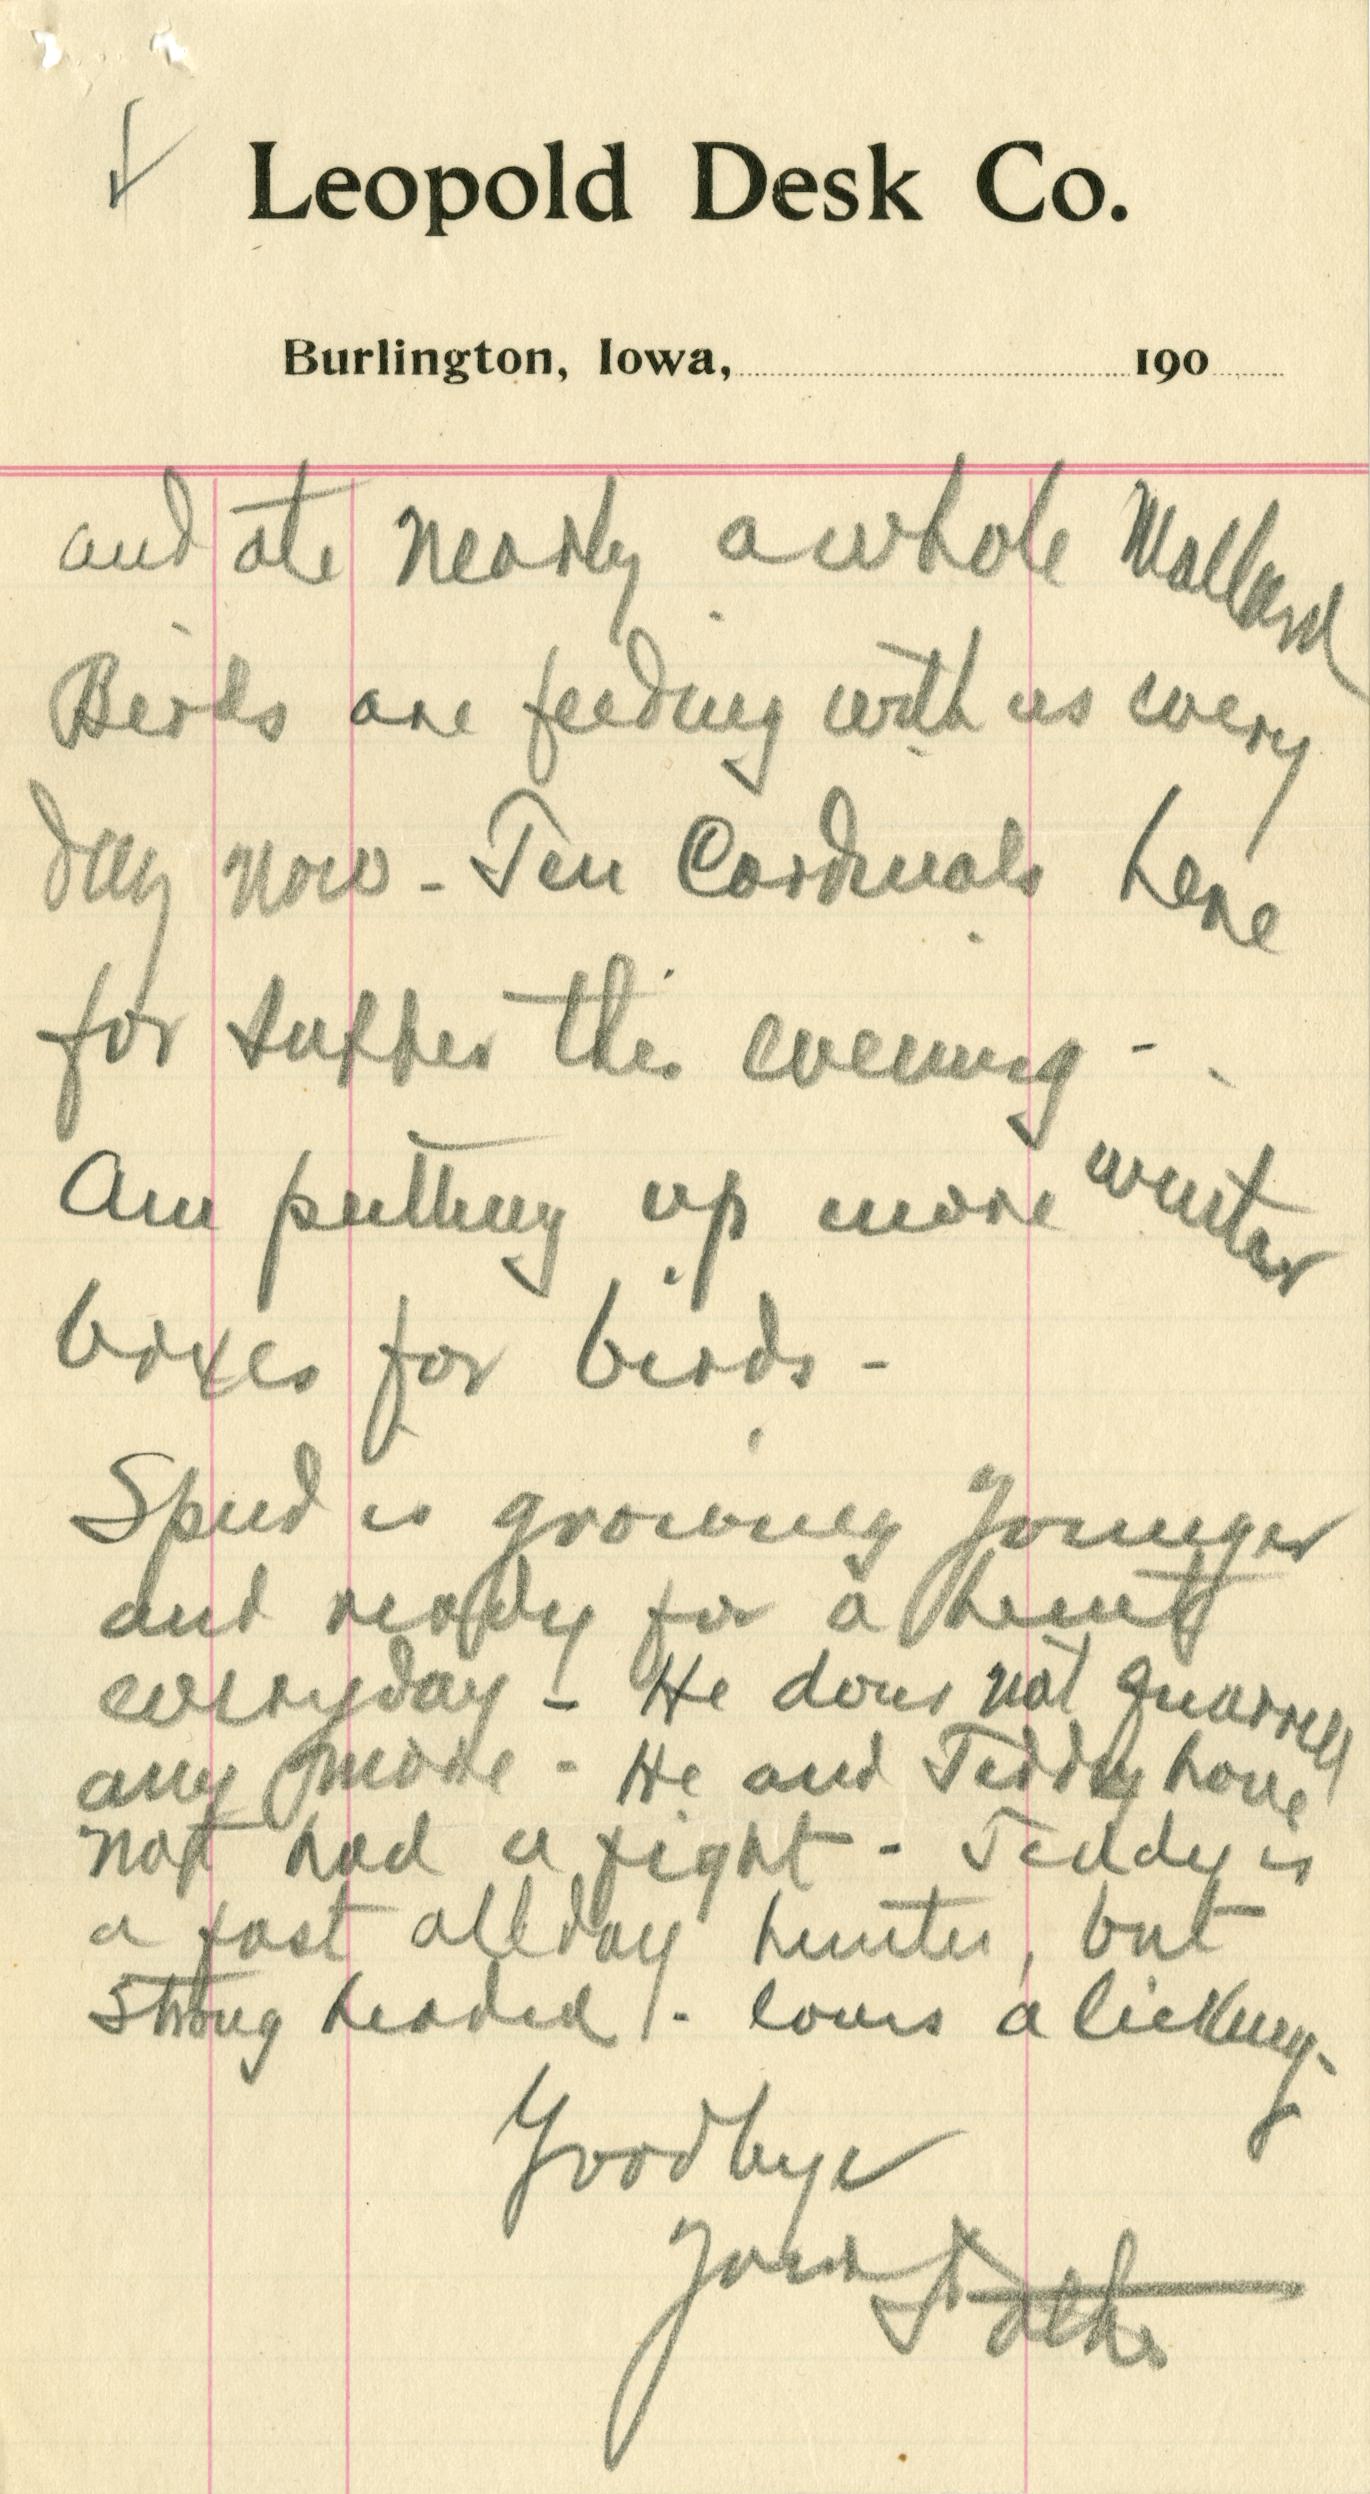 Leopold Desk Co.
Burlington, Iowa, 190
and ate nearly a whole Mallard
Birds are feeding with us every
day now - Ten Cardinals here
for supper this evening -
Am putting up more winter
boxes for birds -
Spud is growing Younger
and ready for a hunt
everyday - He does not quarrell
any more - He and Teddy have
not had a fight - Teddy is
a fast allday hunter, but
strong headed - loves a licking -
Goodbye
Your Father